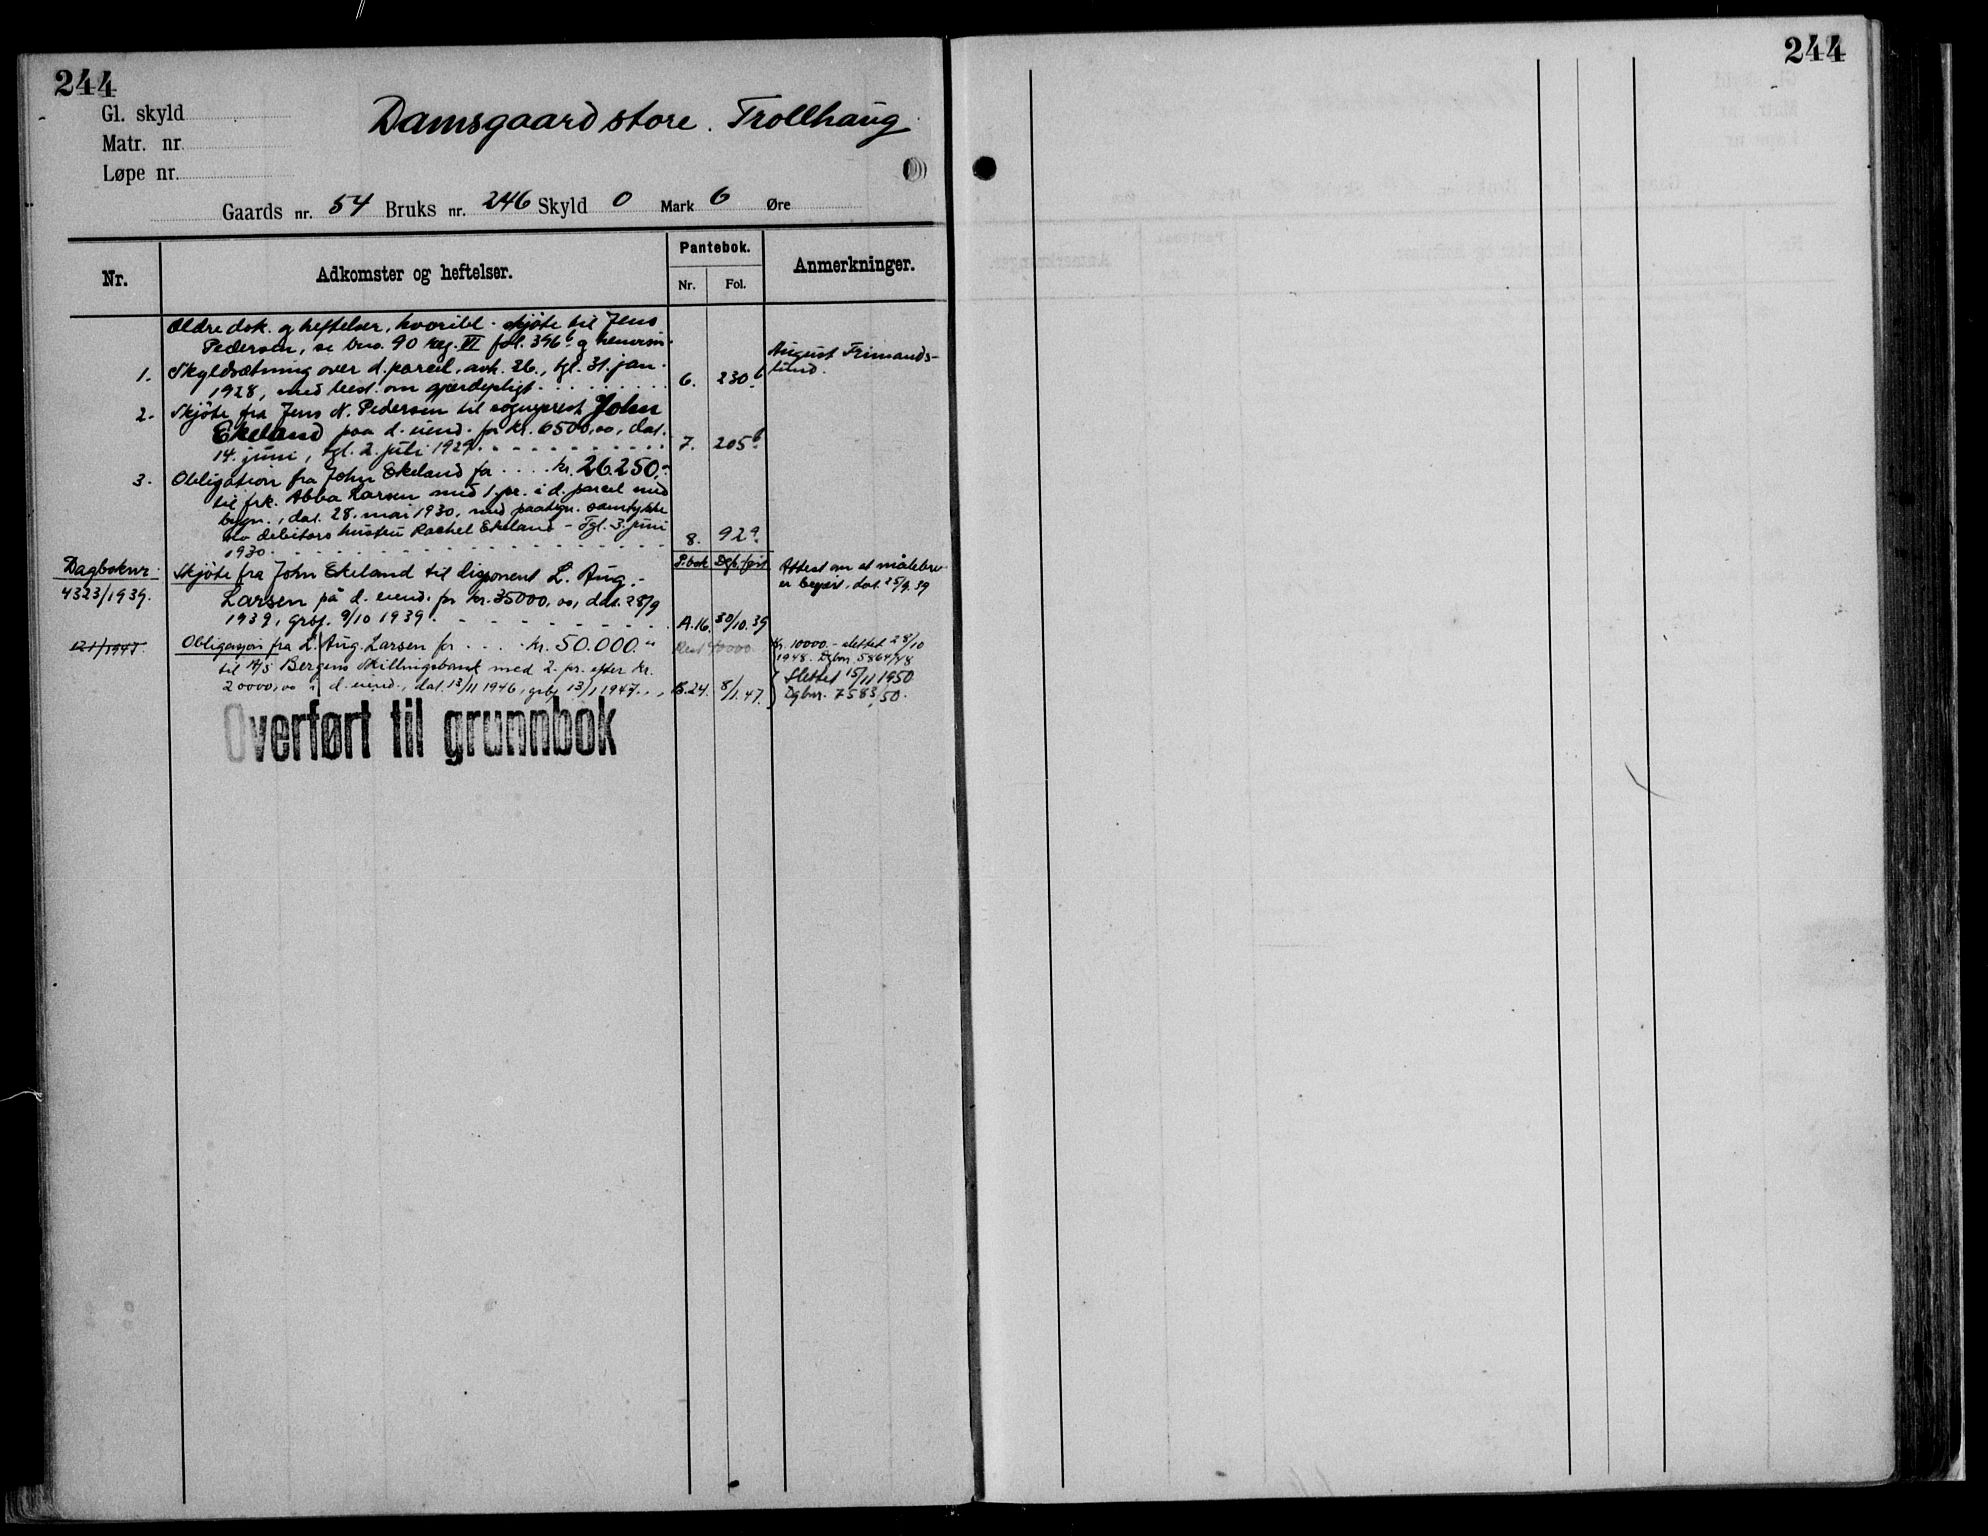 244
244
Gl. skyld
Matr. nr.
Løpe nr.
Damsgaard store. Trollhaug
Gaards nr. 54 Bruks nr. 246 Skyld 0 Mark 6 Øre
Nr.
Adkomster og heftelser.
Pantebok.
Nr. Fol.
Anmerkninger.
Ældre dok. og heftelser, hvoribl. skjöte til Jens
Pedersen, se bno. 90 reg. VI fol. 396b og henvisn.
1. Skyldsætning over d. parcel, avh. 26., tgl. 31. jan.
1928, med best. om gjærdepligt 6. 230b
August Frimands-
lund.
2. Skjöte fra Jens N. Pedersen til sogneprest John
Ekeland paa d. eiend. for kr. 6500,00, dat.
14. juni, tgl. 2. juli 1929. 7. 205b
3. Obligation fra John Ekeland for kr. 26.250,-
til frk. Abba Larsen med 1. pr. i d. parcel med
bygn., dat. 28. mai 1930, med paategn. samtykke
av debitors hustru Rachel Ekeland - Tgl. 3. juni
1930. 8. 92a
P.bok Dgb.ført
Dagboknr.
4323/1939.
Skjöte fra John Ekeland til disponent L. Aug.
Larsen på d. eiend. for kr. 35000,00, dat. 28/9
1939, grbf. 9/10 1939. A.16. 30/10.39
Attest om at målebrev
er begjært, dat. 25/9.39
121/1947
Obligasjon fra L. Aug. Larsen for kr. 50.000.-
Rest 40000
til A/S Bergens Skillingsbank med 2. pr. efter kr.
20000,00 i d. eiend., dat. 13/11 1946, grbf. 13/1 1947. B.24. 8/1.47.
Kr. 10000.- slettet 28/10
1948. Dgbnr. 5864/48
Slettet 15/11 1950
Dgbnr. 7583/50.
Overført til grunnbok